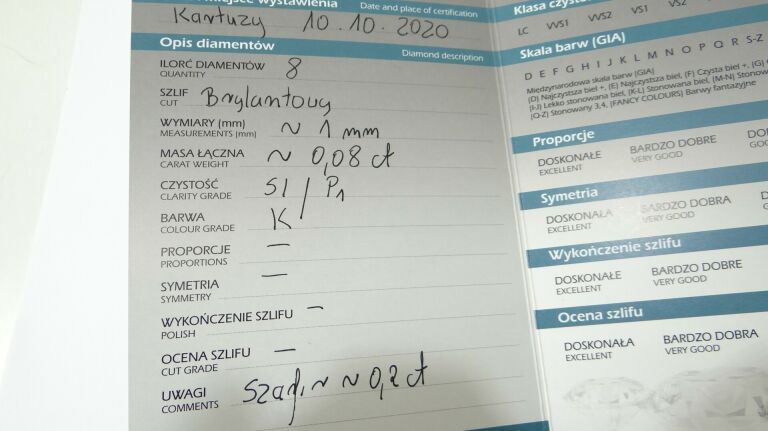 wystawienia Date and place of certification
Kartuzy 10.10.2020
Opis diamentów Diamond description
ILORĆ DIAMENTÓW 8
QUANTITY
SZLIF Brylantowy
CUT
WYMIARY (mm) ~ 1 mm
MEASUREMENTS (mm)
MASA ŁĄCZNA ~ 0,08 ct
CARAT WEIGHT
CZYSTOŚĆ SI / P1
CLARITY GRADE
BARWA K
COLOUR GRADE
PROPORCJE —
PROPORTIONS
SYMETRIA —
SYMMETRY
WYKOŃCZENIE SZLIFU —
POLISH
OCENA SZLIFU —
CUT GRADE
UWAGI Szafir ~ 0,2 ct
COMMENTS
Klasa
LC VVS1 VVS2 VS1 VS2
Skala barw (GIA)
D E F G H I J K L M N O P Q R S-Z
Międzynarodowa skala barw (GIA)
(D) Najczystsza biel +, (E) Najczystsza biel, (F) Czysta biel +, (G)
(I-J) Lekko stonowana biel, (K-L) Stonowana biel, (M-N)
(O-Z) Stonowany 3,4, (FANCY COLOURS) Barwy fantazyjne
Proporcje
DOSKONAŁE BARDZO DOBRE
EXCELLENT VERY GOOD
Symetria
DOSKONAŁA BARDZO DOBRA
EXCELLENT VERY GOOD
Wykończenie szlifu
DOSKONAŁE BARDZO DOBRE
EXCELLENT VERY GOOD
Ocena szlifu
DOSKONAŁA BARDZO DOBRA
EXCELLENT VERY GOOD